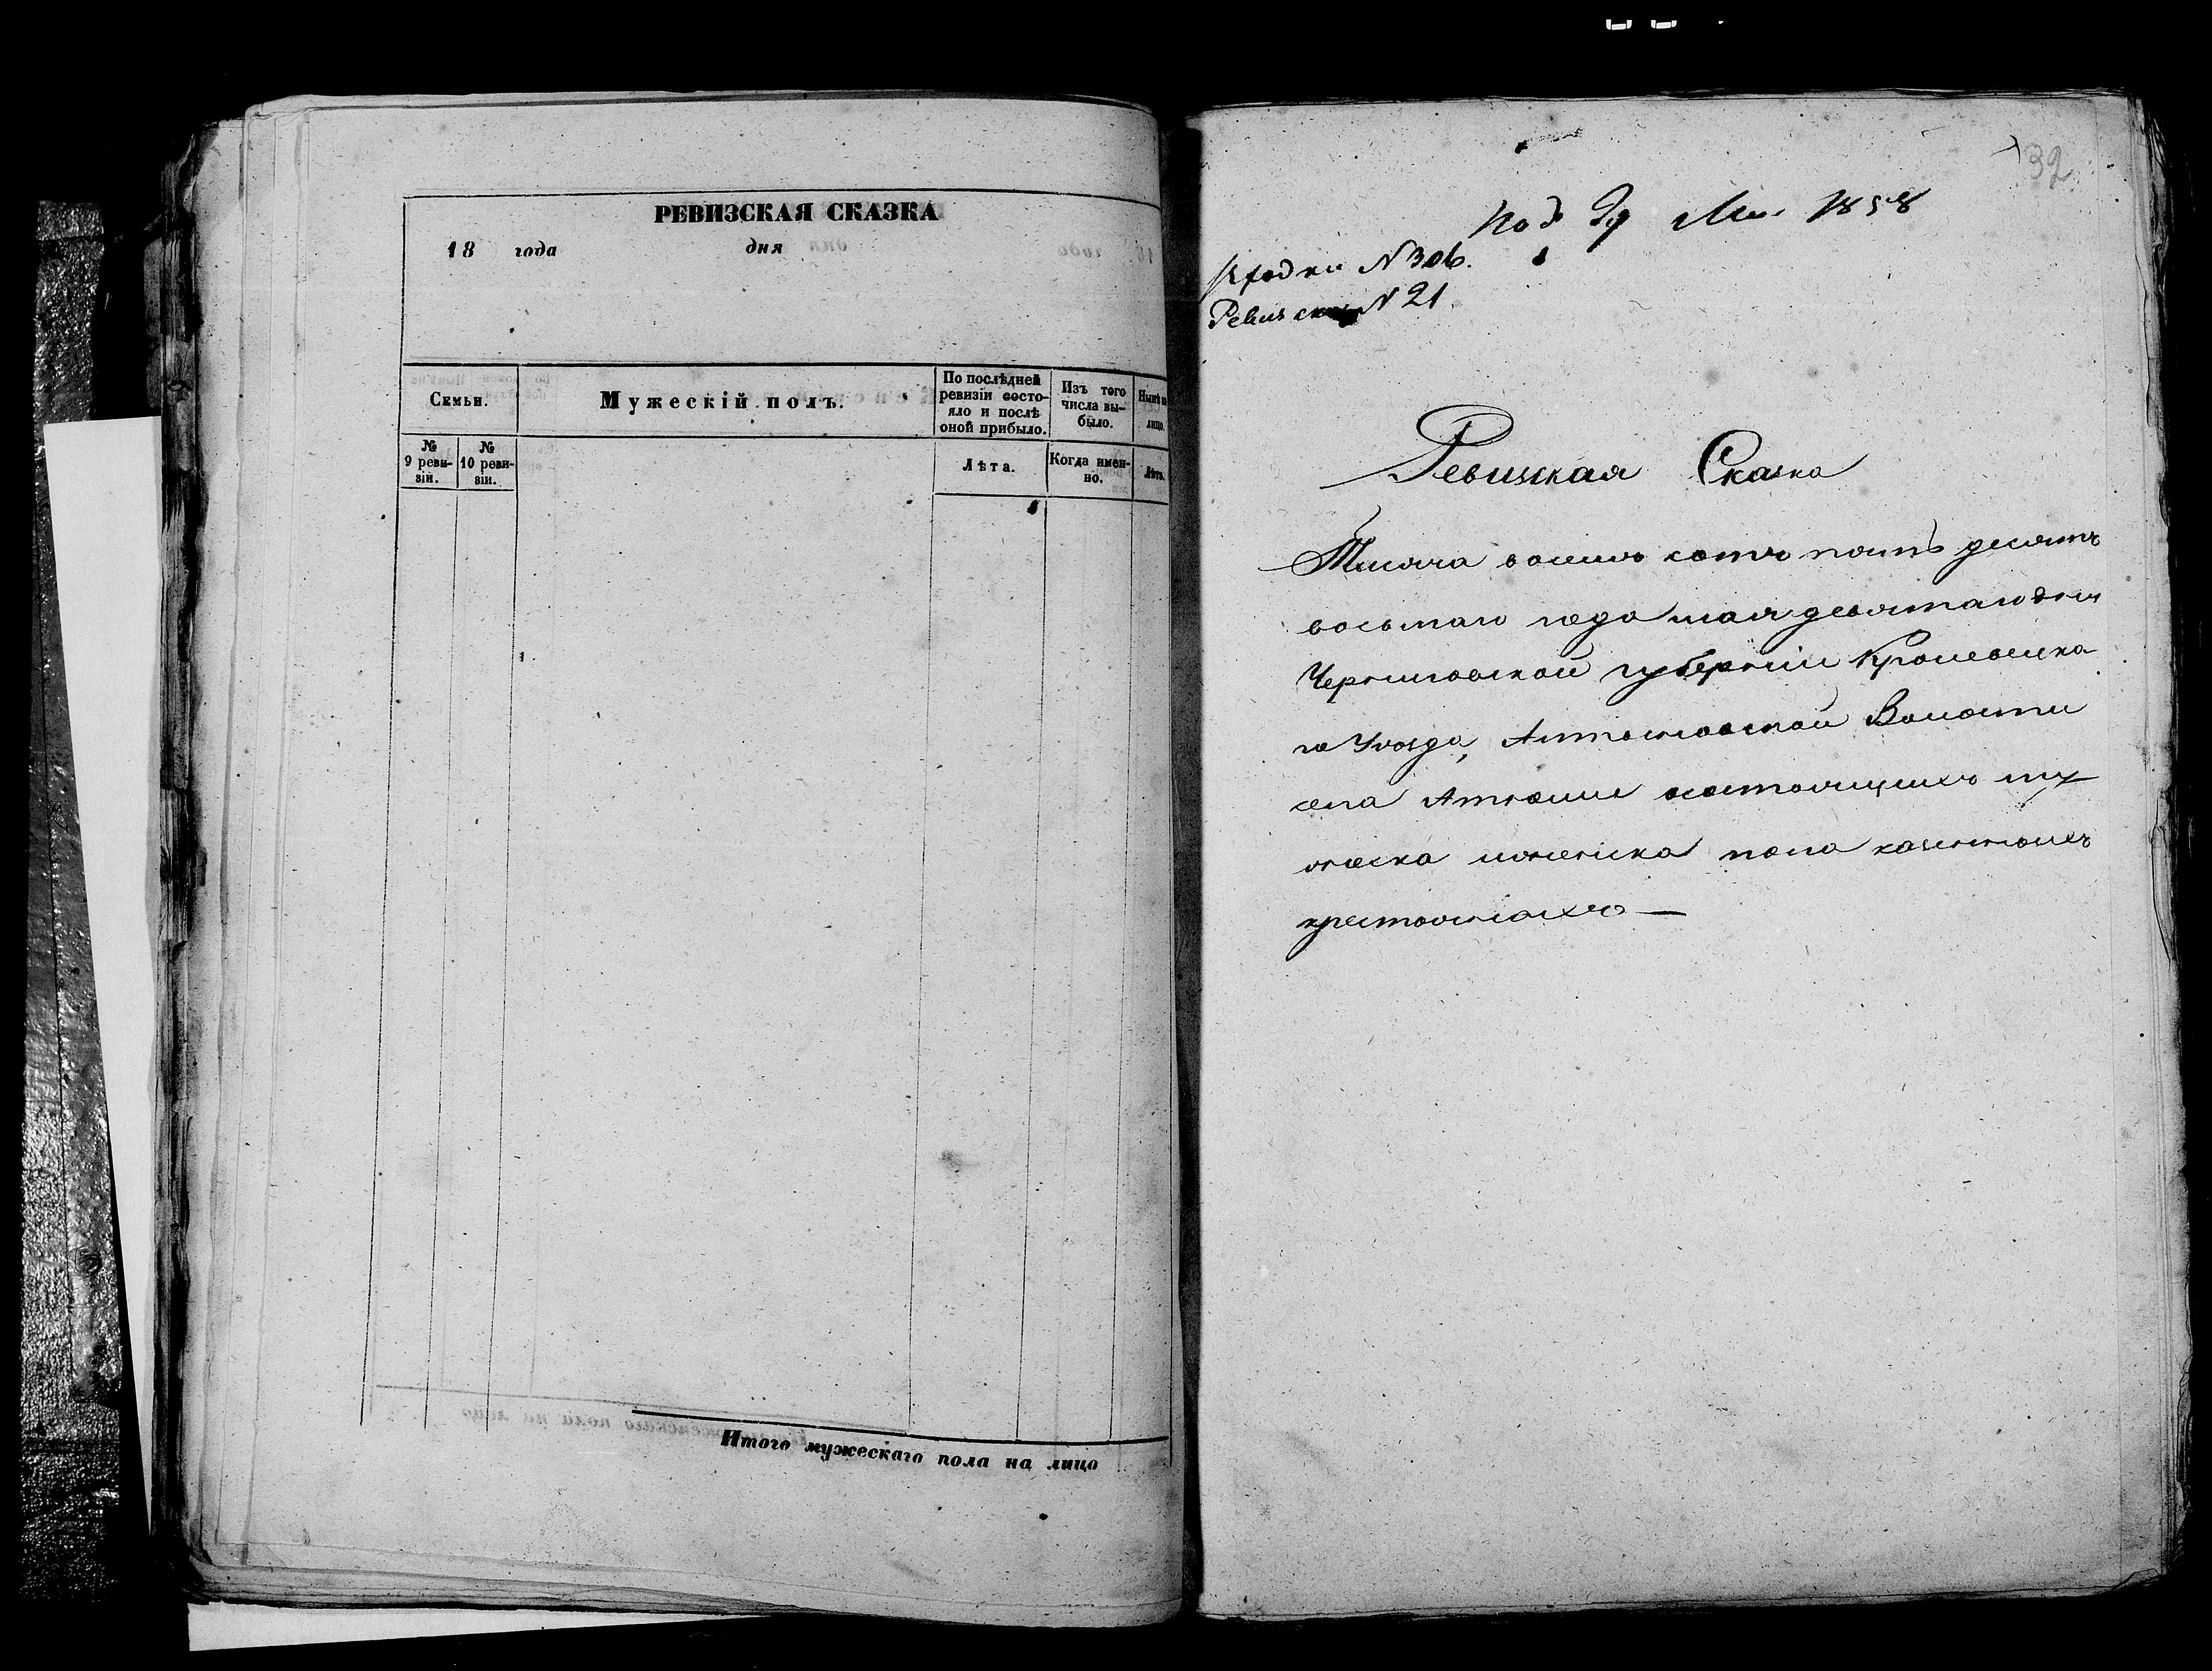 РЕВИЗСКАЯ СКАЗКА
18 года дня
Семьи.
Мужескій полъ.
По послѣдней ревизіи состо-
яло и послѣ
оной прибыло.
Изъ того
числа вы-
было.
Нынѣ на
лицо.
№
9 реви-
зіи.
№
10 реви-
зіи.
Лѣта.
Когда имен-
но.
Лѣта.
Итого мужескаго пола на лицо
32
1858
N 306.
Ревизск N 21.
Ревизская Сказка
Тысяча восемь сотъ пять десятъ
восьмаго года мая девятаго дня
Черниговской губерніи Кролевецка
го Уѣзда, Волости
села Атюши состоящихъ му
жеска и женска пола казенныхъ
крестьянахъ —